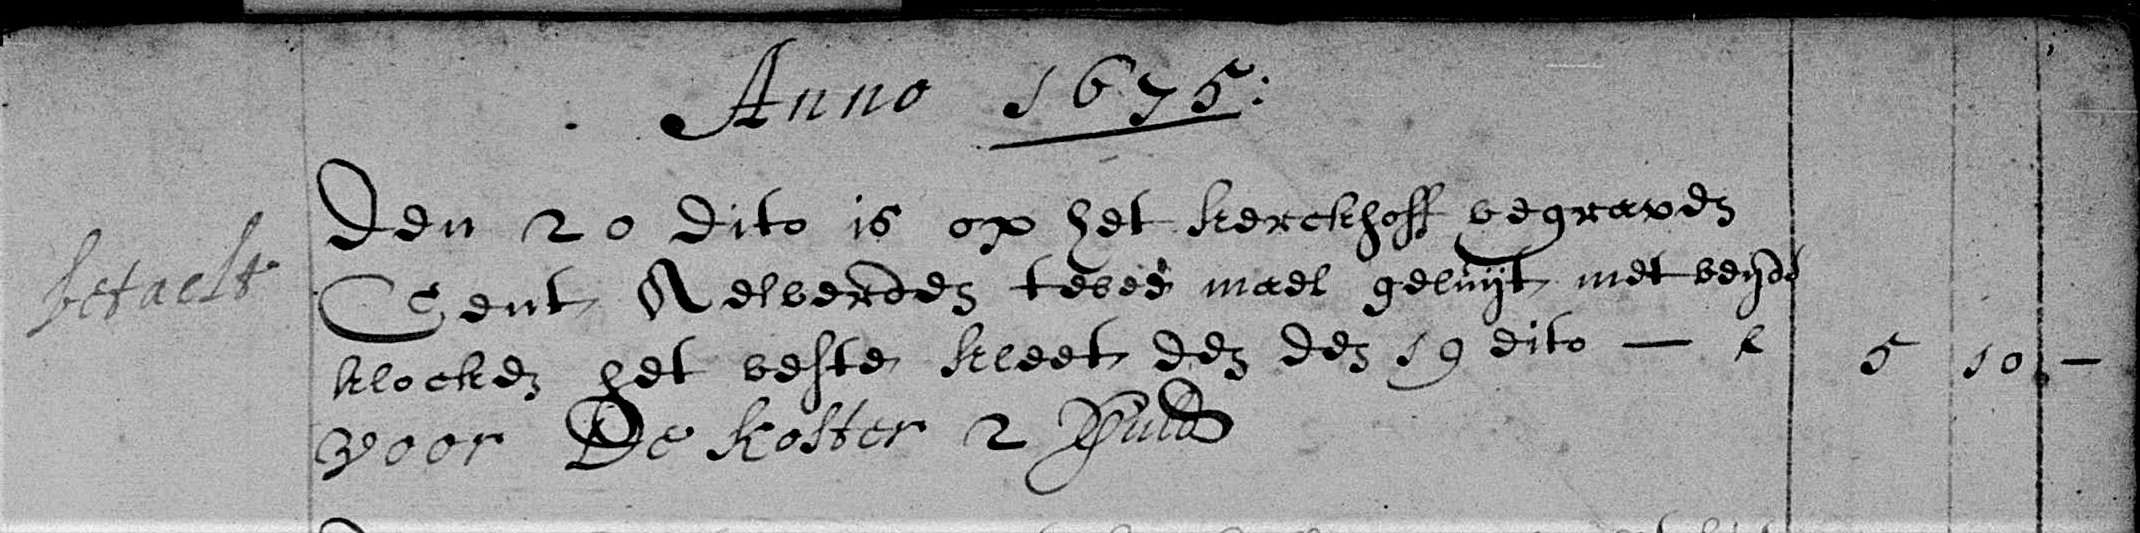 Anno 1675:
Den 20 dito is op het kerckhoff begraven
betaelt
Gent Aelberdes twee mael geluijt met beijde
klocken het beste kleet den den 19 dito — f 5 10 —
voor De koster 2 guld